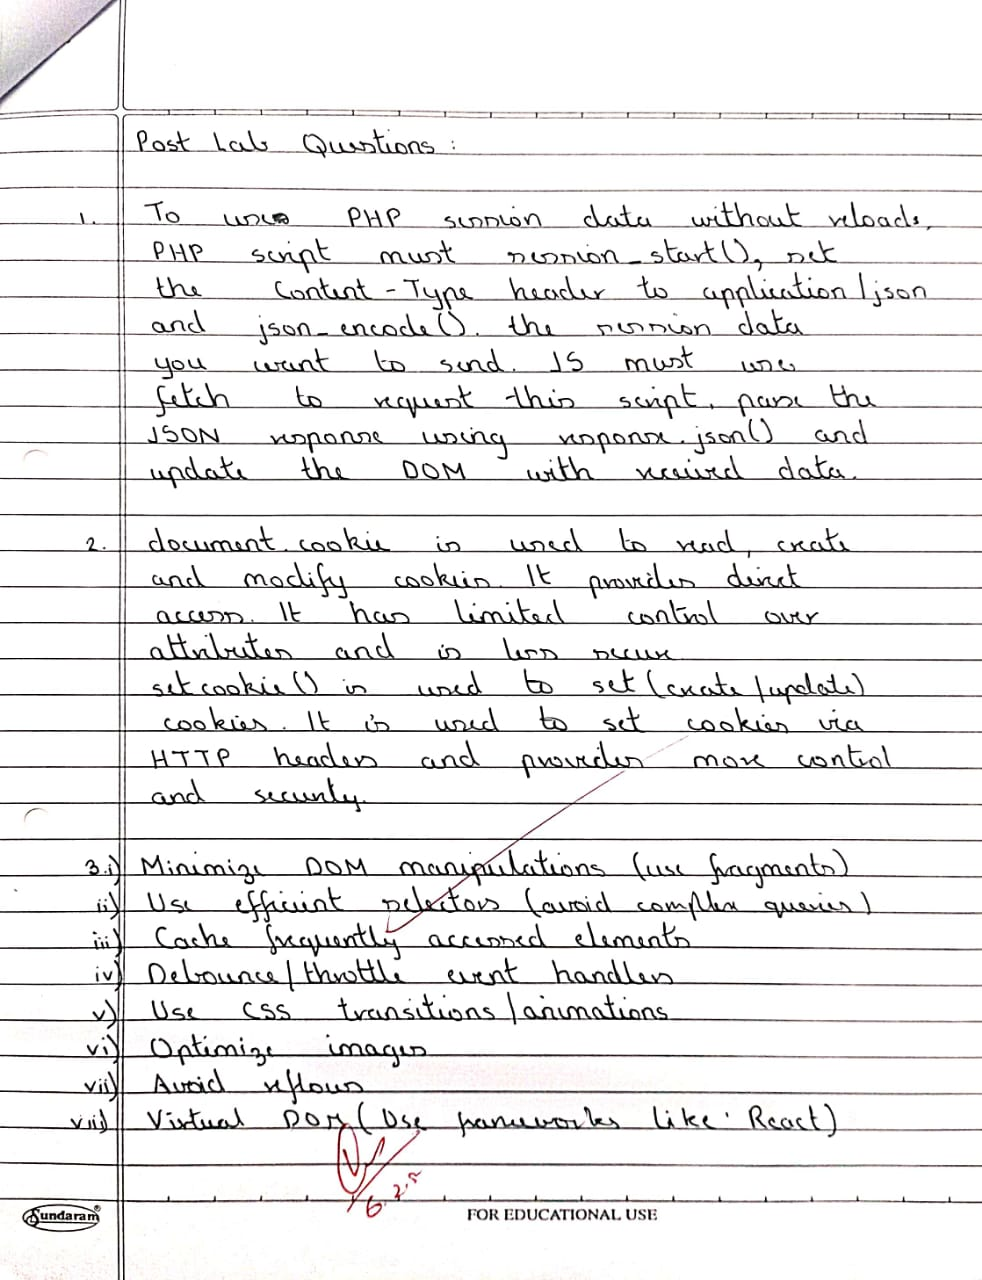 Post Lab Questions :
1. To use PHP session data without reloads,
PHP script must session_start(), set
the Content-Type header to application/json
and json_encode(). the session data
you want to send. JS must use
fetch to request this script, parse the
JSON response using response.json() and
update the DOM with received data.
2. document.cookie is used to read, create
and modify cookies. It provides direct
access. It has limited control over
attributes and is less secure
setcookie() is used to set (create/update)
cookies. It is used to set cookies via
HTTP headers and provides more control
and security.
3. i) Minimize DOM manipulations (use fragments)
ii) Use efficient selectors (avoid complex queries)
iii) Cache frequently accessed elements
iv) Debounce/throttle event handlers
v) Use CSS transitions/animations
vi) Optimize images
vii) Avoid reflows
viii) Virtual DOM (Use frameworks like React)
Sundaram®
FOR EDUCATIONAL USE